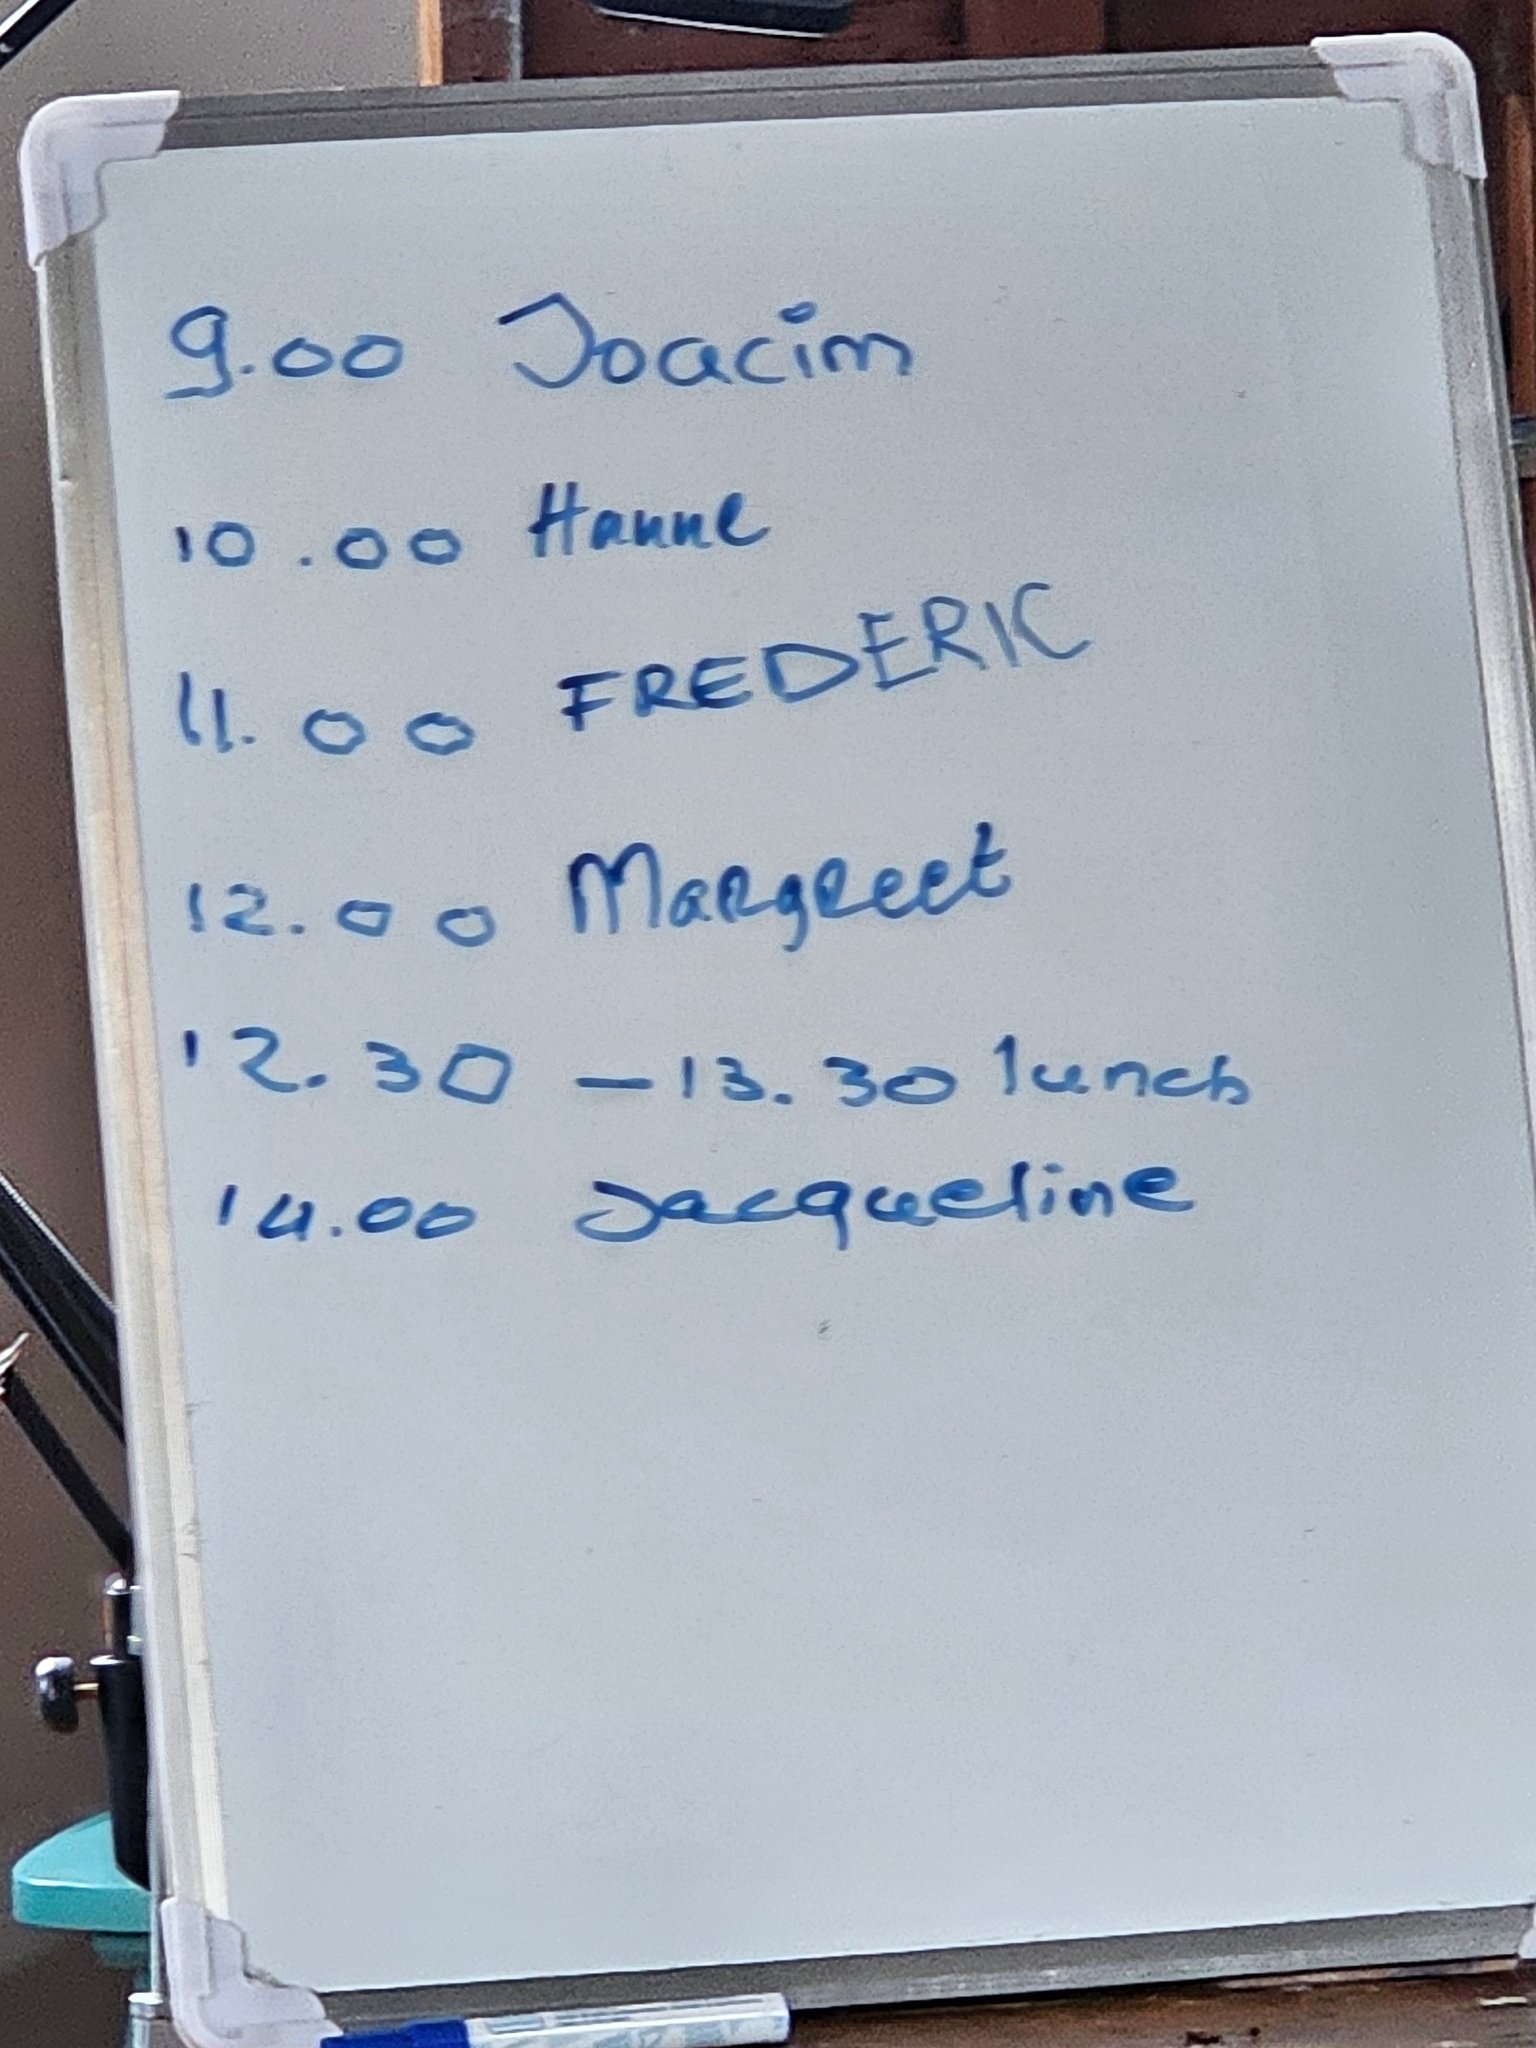 9.00 Joacim
10.00 Hanne
11.00 FREDERIC
12.00 Margreet
12.30 – 13.30 lunch
14.00 Jacqueline